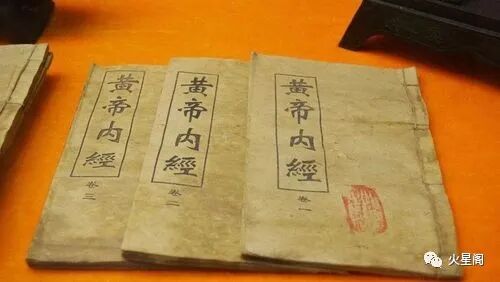 黃帝内經
卷三
黃帝内經
卷二
黃帝内經
卷一
火星阁